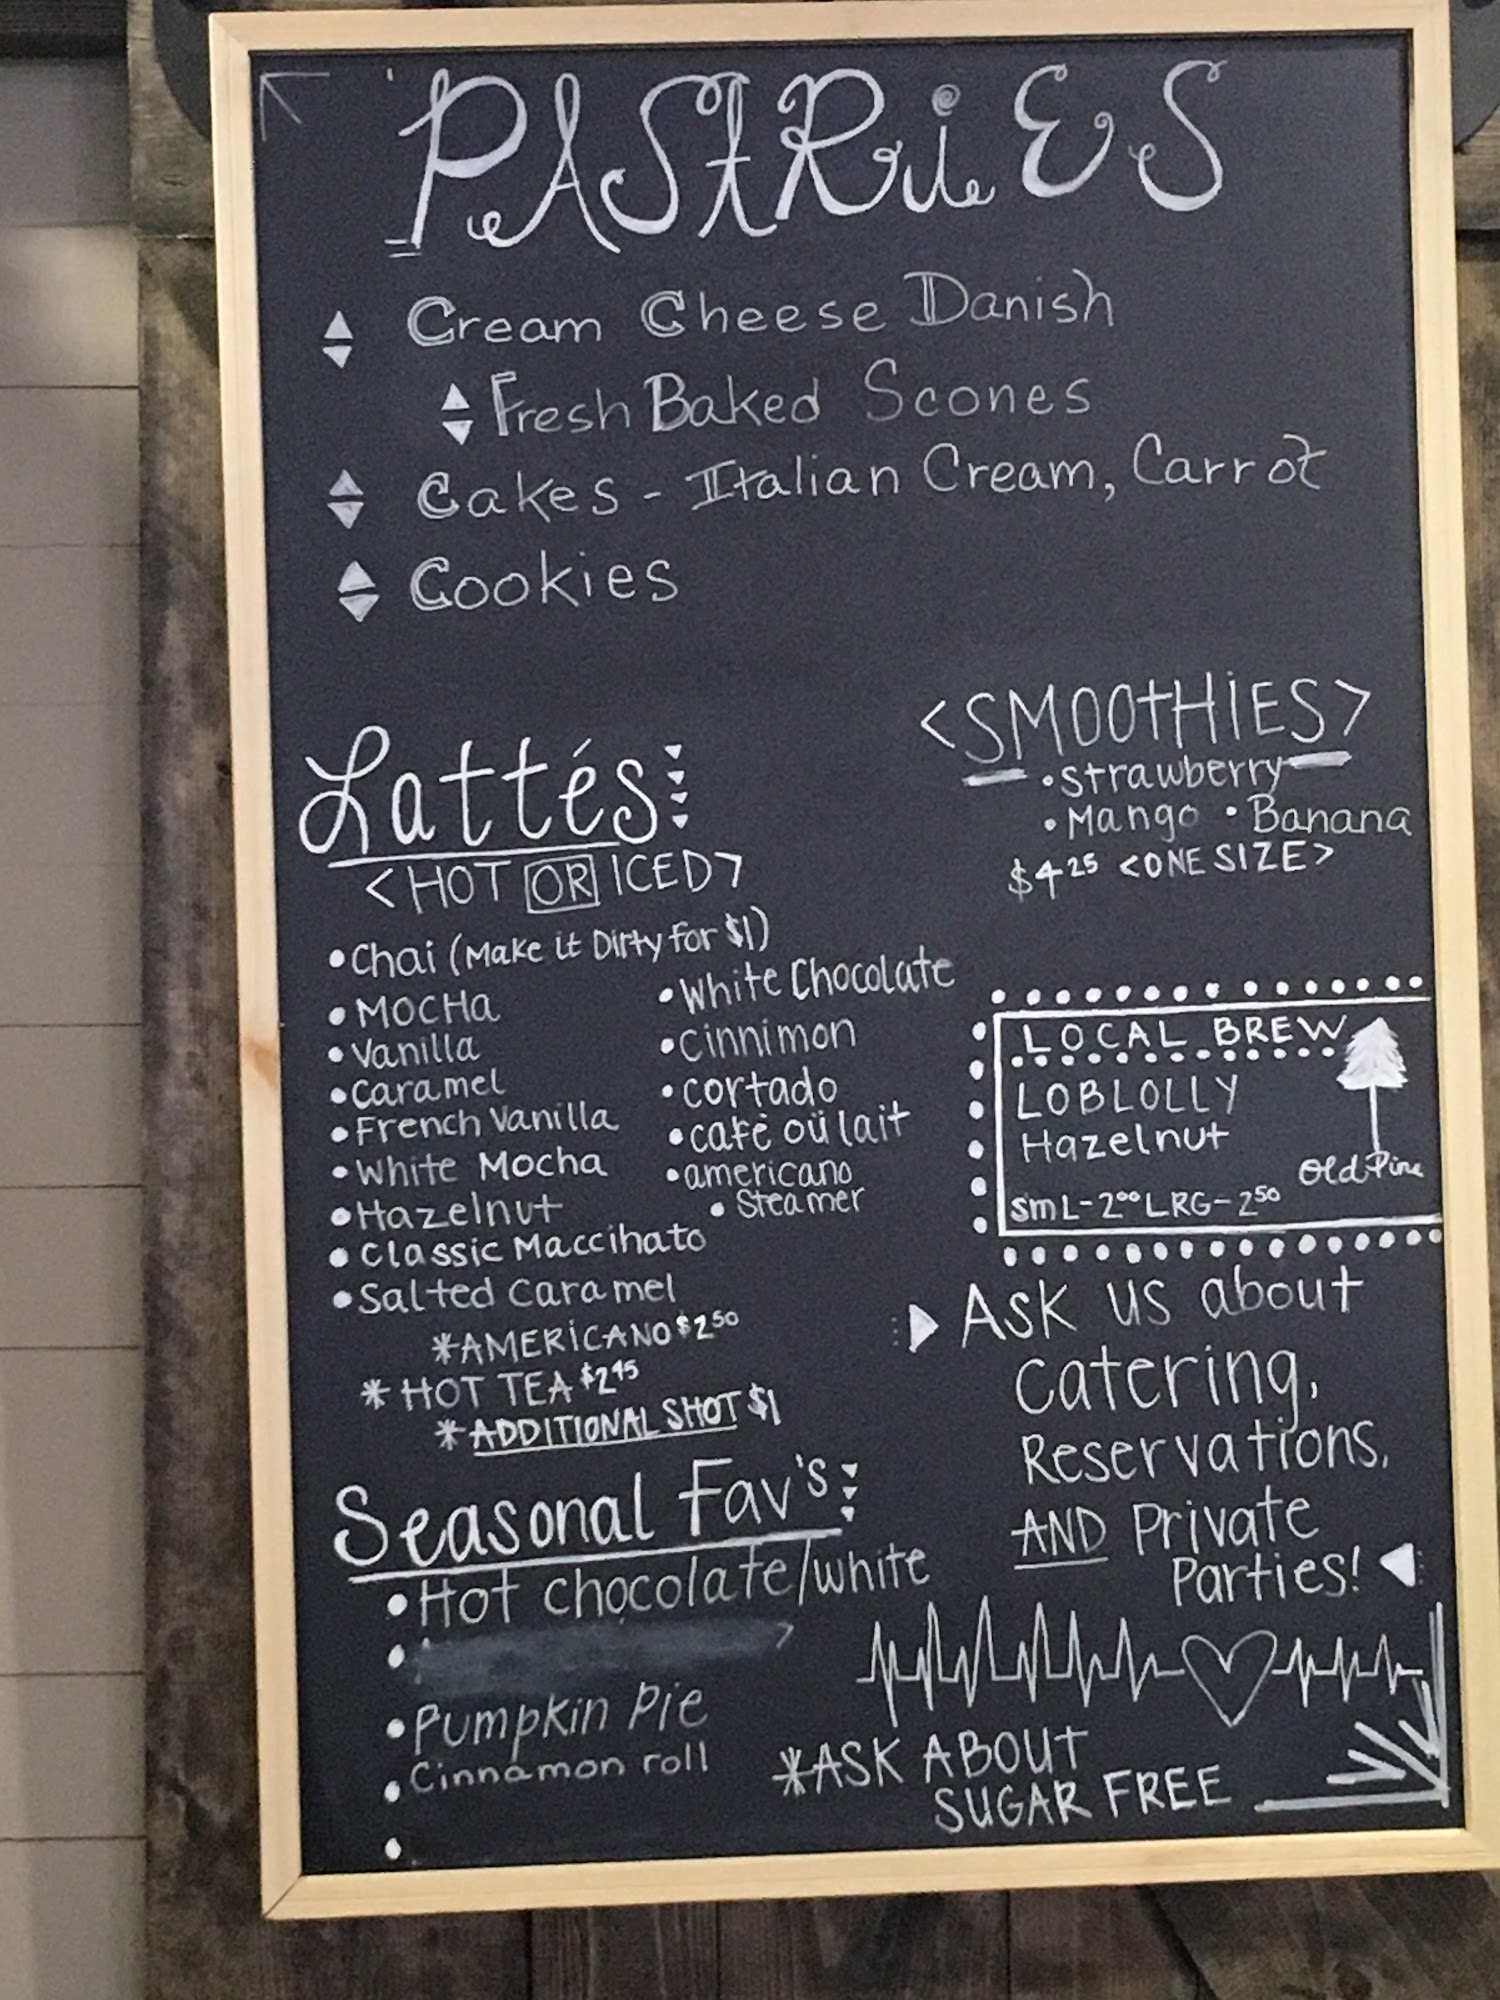 PAStRiES
Cream Cheese Danish
Fresh Baked Scones
Cakes - Italian Cream, Carrot
Cookies
<SMOOtHiES>
• Strawberry
• Mango • Banana
$4.25 <ONE SIZE>
Lattés
<HOT OR ICED>
• Chai (Make it Dirty for $1)
• MOCHa
• Vanilla
• Caramel
• French Vanilla
• White Mocha
• Hazelnut
• Classic Maccihato
• Salted Caramel
• White Chocolate
• Cinnimon
• cortado
• café oü lait
• americano
• Steamer
*AMERiCANO $2.50
* HOT TEA $2.45
*ADDITIONAL SHOT $1
LOCAL BREW
LOBLOLLY
Hazelnut
Old Pine
SmL-2.00 LRG-2.50
Ask us about
Catering,
Reservations,
AND Private
Parties!
Seasonal Fav's
• Hot Chocolate/white
•
• Pumpkin Pie
• Cinnamon roll
•
*ASK ABOUT
SUGAR FREE